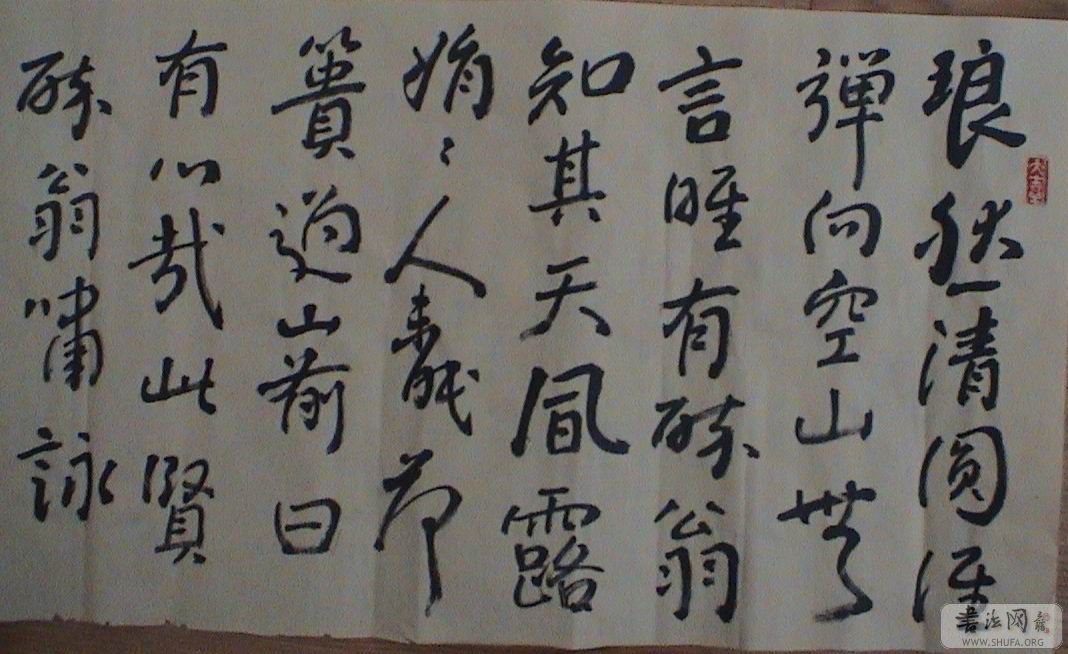 琅然清圓誰
彈向空山無
言唯有醉翁
知其天風露
娟〻人未眠荷
簣過山前曰
有心哉此賢
醉翁嘯詠
書法网
WWW.SHUFA.ORG